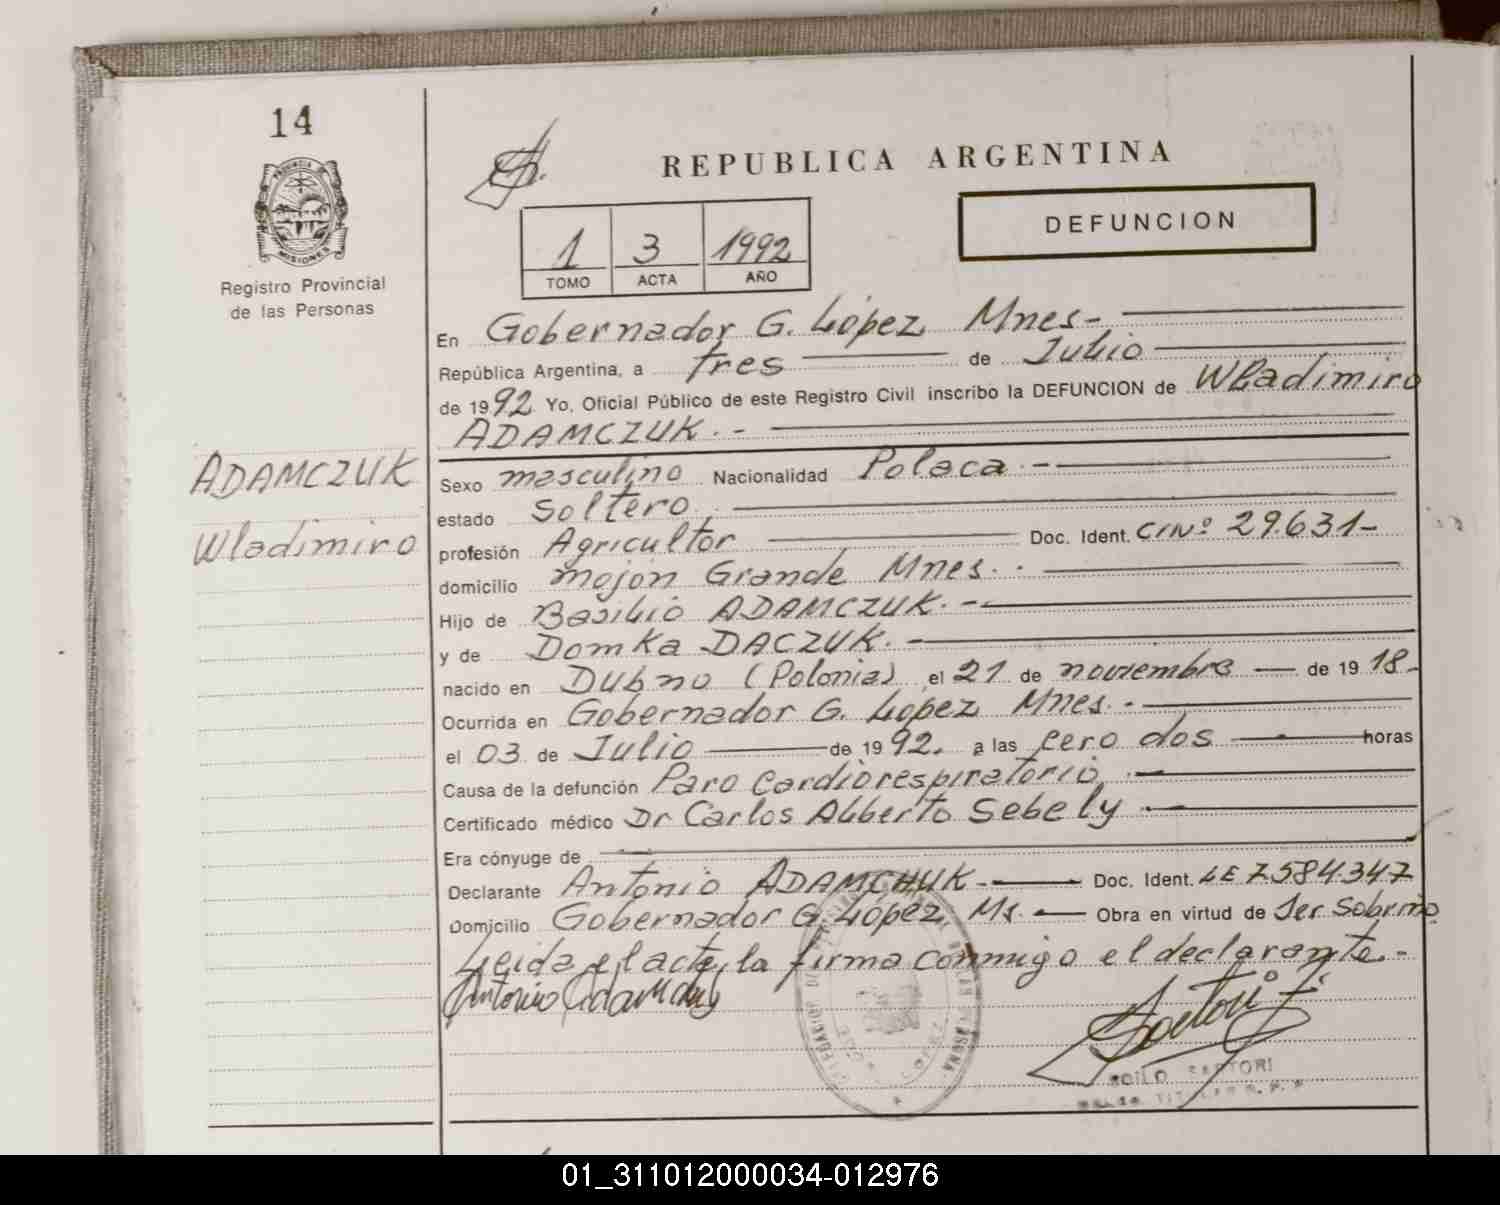 14
PROVINCIA
MISIONES
Registro Provincial
de las Personas
REPUBLICA ARGENTINA
1 3 1992
TOMO ACTA AÑO
DEFUNCION
En Gobernador G. López Mnes-
República Argentina, a tres de Julio
de 1992 Yo, Oficial Público de este Registro Civil inscribo la DEFUNCION de Wladimiro
ADAMCZUK.-
ADAMCZUK
Wladimiro
Sexo masculino Nacionalidad Polaca.-
estado Soltero
profesión Agricultor Doc. Ident. CINº 29.631-
domicilio mojón Grande Mnes.-
Hijo de Basilio ADAMCZUK.-
y de Domka DACZUK.-
nacido en Dubno (Polonia) el 21 de noviembre de 1918-
Ocurrida en Gobernador G. López Mnes.-
el 03 de Julio de 1992. a las cero dos horas
Causa de la defunción Paro cardiorespiratorio.-
Certificado médico Dr Carlos Alberto Sebely.-
Era cónyuge de
Declarante Antonio ADAMCHUK.- Doc. Ident. LE 7584347
Domicilio Gobernador G. López Ms.- Obra en virtud de Ser Sobrino.
Leida el acta, la firma conmigo el declarante.-
Antonio Adamchuk
SARTORI
01_311012000034-012976